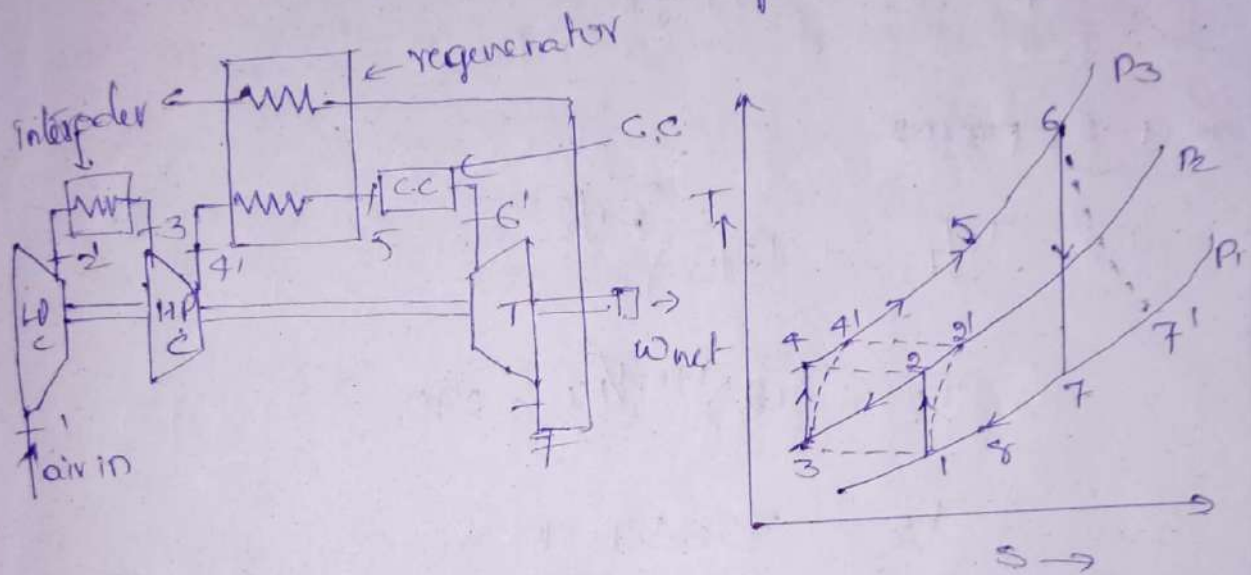 regenerator
intercooler
C.C
C.C
2'
3
4'
5
6'
LP
C
HP
C
T
Wnet
1
air in
7
T
P3
P2
P1
6
5
4
4'
2
2'
7'
7
3
1
8
S →